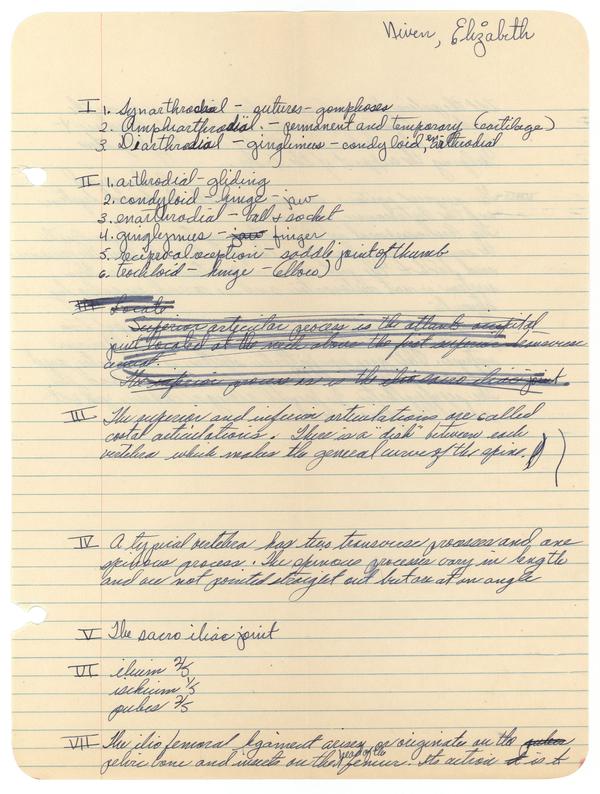 Niven, Elizabeth
I 1. Synarthrodial - sutures - gomphoses
2. Amphiarthrodial. - permanent and temporary (cartilage)
3. Diarthrodial - ginglimus - condyloid, en-arthrodial
II 1. arthrodial - gliding
2. condyloid - hinge - jaw
3. enarthrodial - ball & socket
4. ginglymus - jaw finger
5. reciprocal reception - saddle joint of thumb
6. trochloid - hinge - (elbow)
III Locate
Superior articular process is the atlanto occipital
joint located at the neck above the first superior transverse
The superior process is is the ilio sacro iliac joint
III The superior and inferior articulations are called
costal articulations. There is a "disk" between each
vertebra which makes the general curve of the spine.
IV A typical vertebra has two transverse processes and one
spinous process. The spinous processes vary in length
and are not pointed straight out but are at an angle
V The sacro iliac joint
VI ilium 2/5
ischium 1/5
pubes 2/5
VII The ilio femoral ligament arises, or originates on the
pelvic bone and inserts on the head of the femur. Its action is t